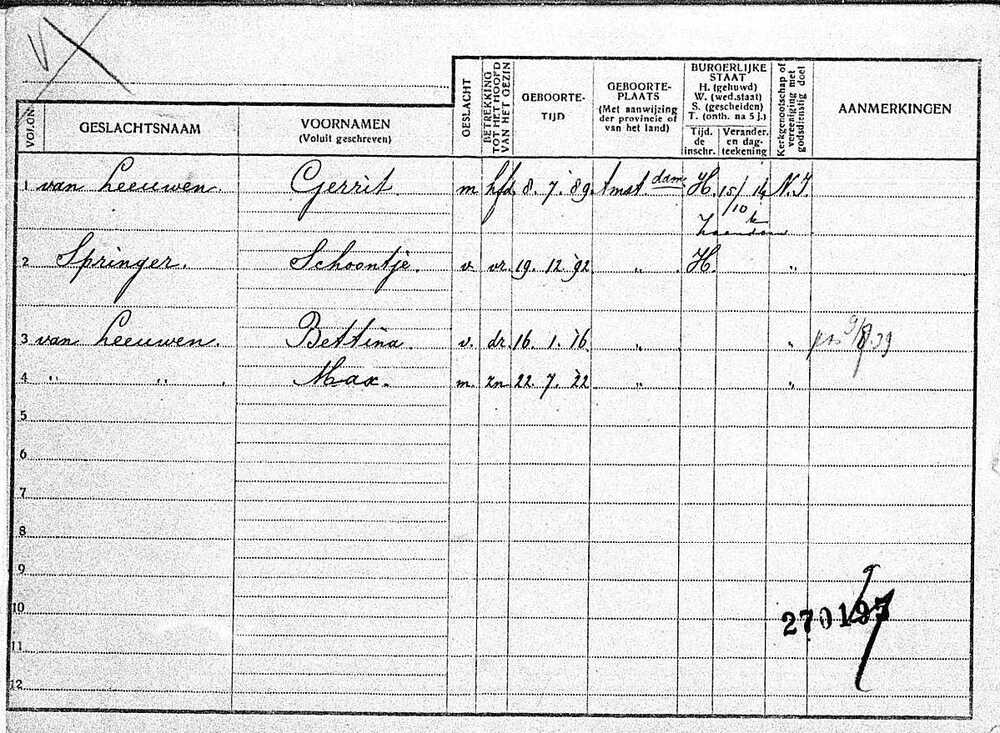 VOLGN.
GESLACHTSNAAM
VOORNAMEN
(Voluit geschreven)
GESLACHT
BETREKKING
TOT HET HOOFD
VAN HET GEZIN
GEBOORTE-
TIJD
GEBOORTE-
PLAATS
(Met aanwijzing
der provincie of
van het land)
BURGERLIJKE
STAAT
H. (gehuwd)
W. (wed.staat)
S. (gescheiden)
T. (onth. na 5 j.)
Tijd.
de
inschr.
Verander.
en dag-
teekening
Kerkgenootschap of
vereeniging met
godsdienstig doel
AANMERKINGEN
1 van Leeuwen. Gerrit m hfd 8. 7. '89. Amst.dam. H. 15/10 14 N.I.
Zaandam
2 Springer. Schoontje. v. vr. 19. 12. '92 " H. "
3 van Leeuwen. Bettina v. dr. 16. 1. '16. " " 9/8 39
4 " " . Max. m. zn 22. 7. '22 " "
5
6
7
8
9
10
11
12
270197